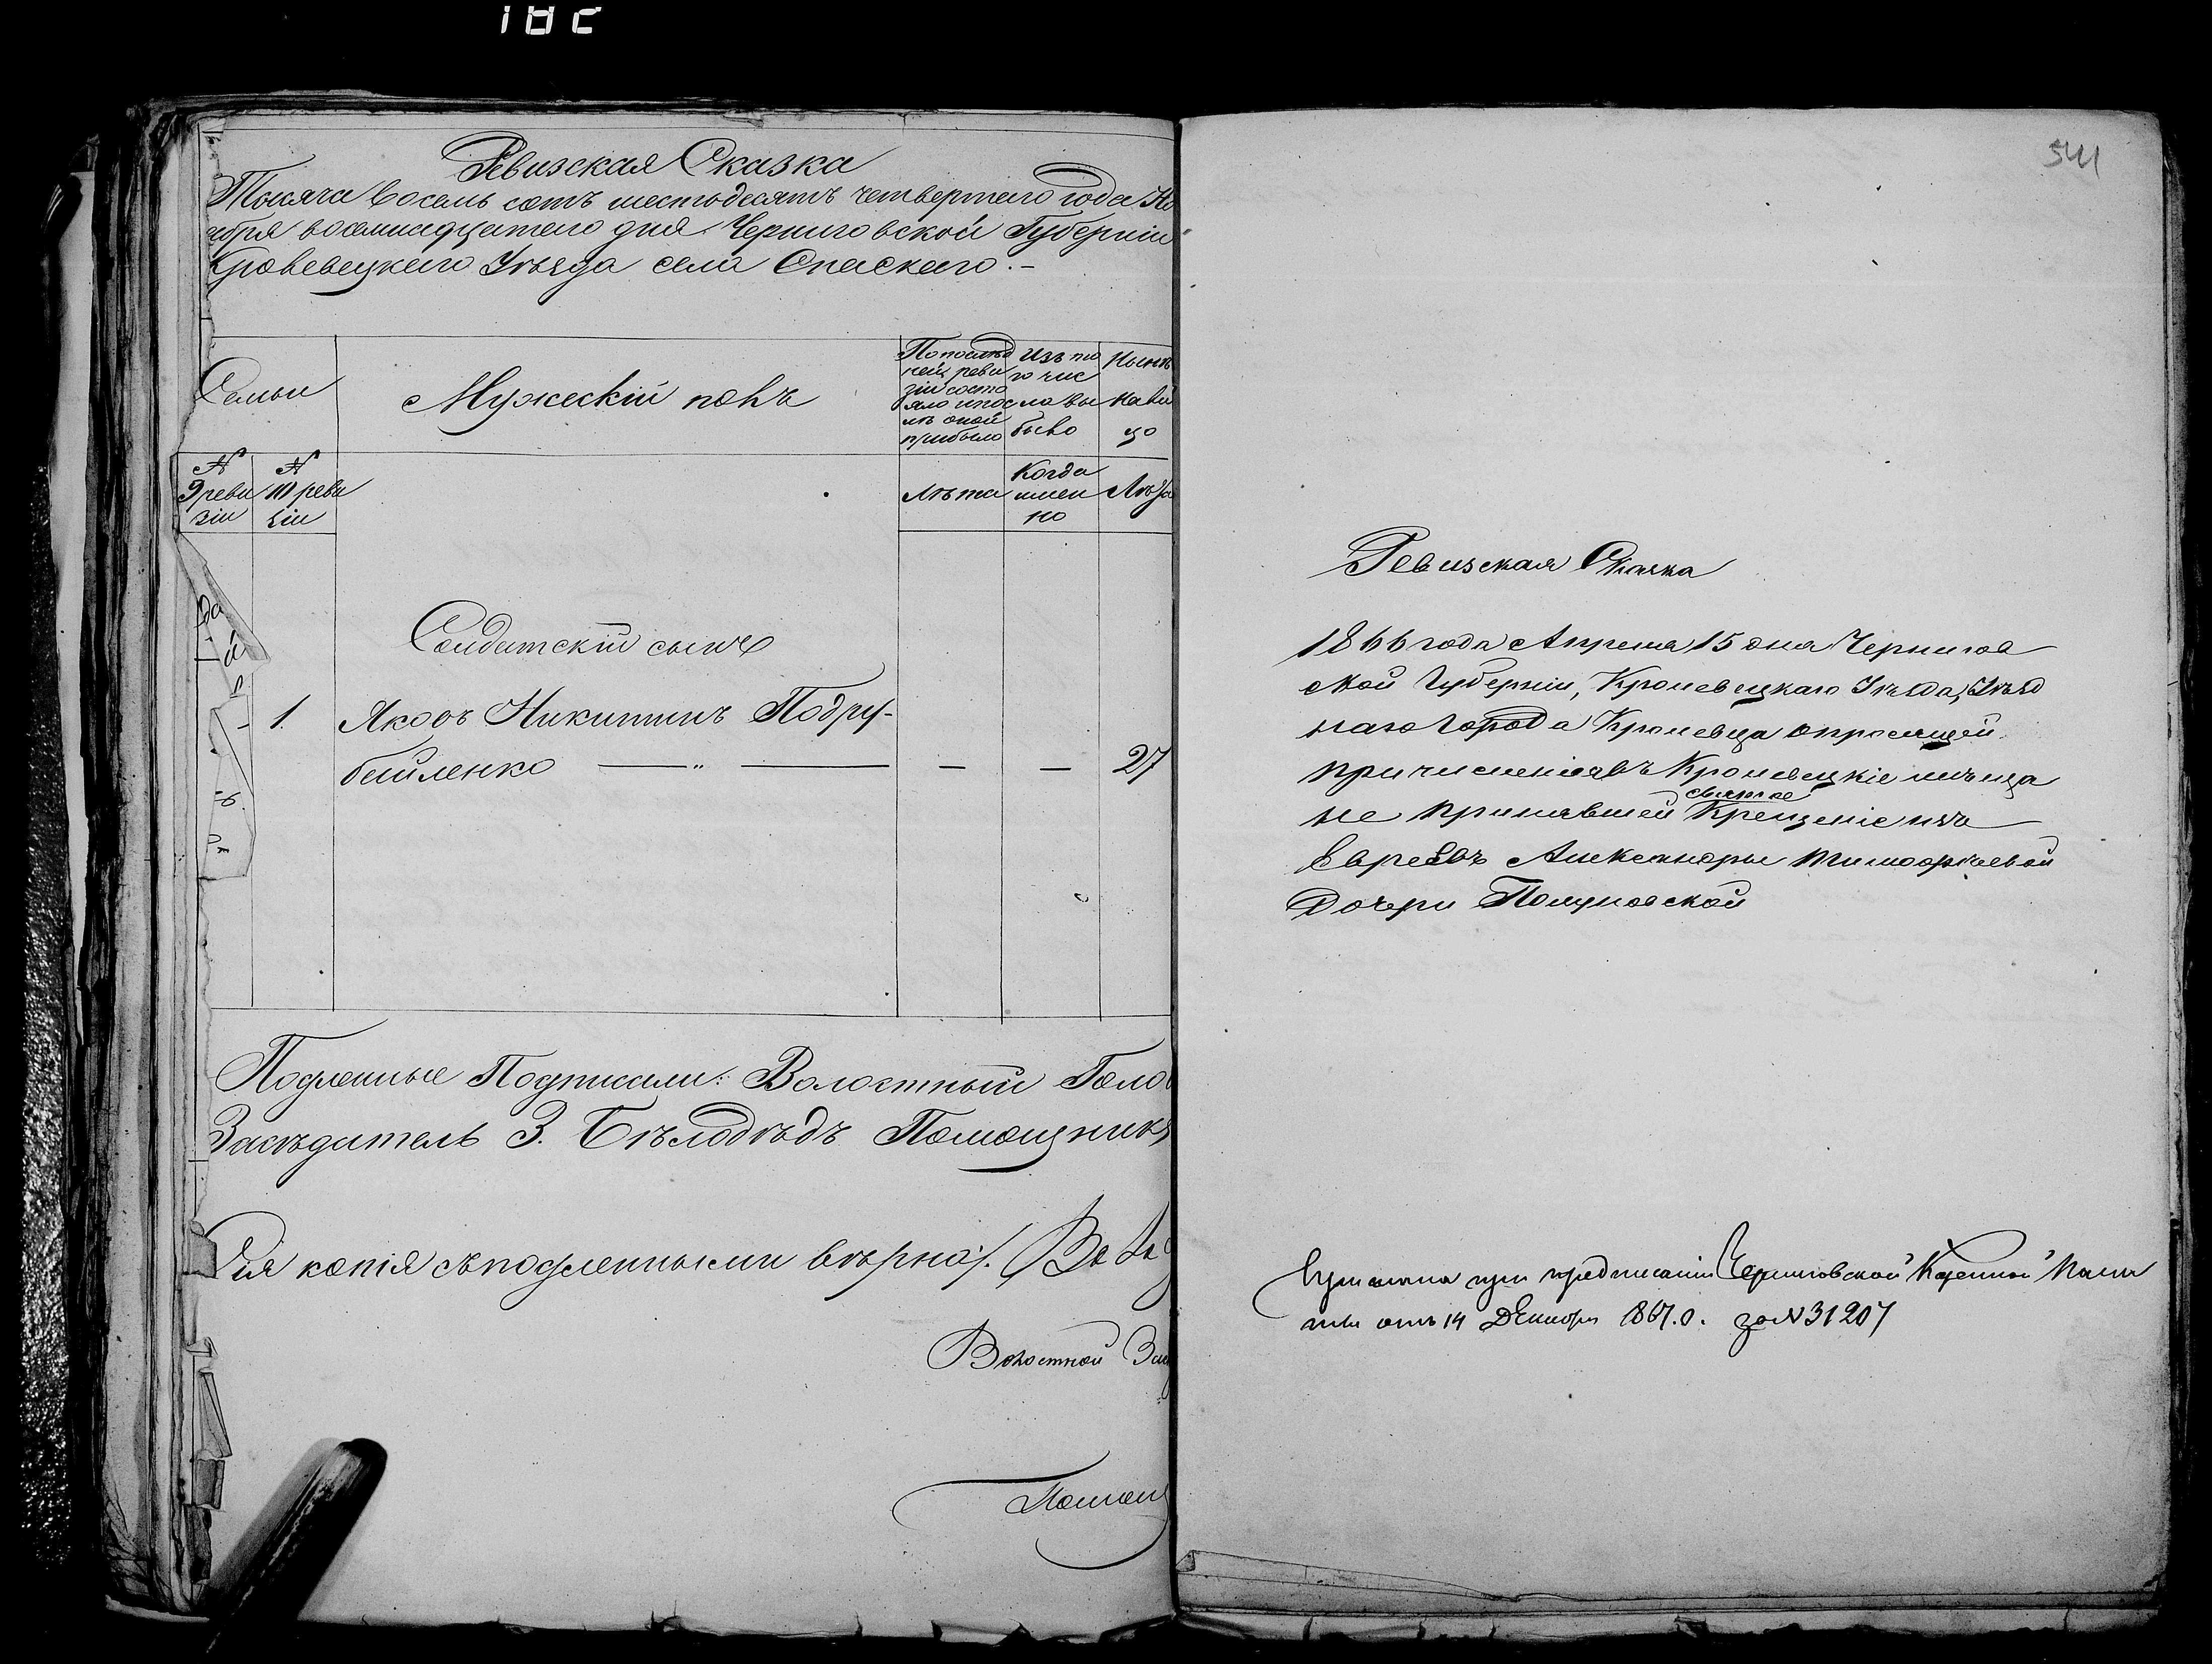 182
Ревизская Сказка
Тысяча восемь сотъ шестьдесятъ четвертаго года Но
ября восемнадцатаго дня Черниговской Губерніи
Кролевецкаго Уѣзда села Спаскаго.-
Семьи
Мужескій полъ
Попослѣд
ней реви
зіи состо
яло ипос
лѣ оной
прибыло
Изъ то
го чис
ла вы
было
Нынѣ
нали
цо
№
9 реви
зіи
№
10 реви
зіи
Лѣта
Когда
имен
но
Лѣта
Солдатскій сынъ
1. Яковъ Никитинъ Подру-
байленко — „ — — — 27
Подленные Подписали: Волостный Голов
Засѣдатель З. Бѣлодѣдъ Помощникъ
Сія копія съподленными вѣрна:
Волостной
Помощ
541
Ревизская Сказка
1866 года Апреля 15 дня Чернигов
ской Губерніи, Кролевецкаго Уѣзда, Уѣзд
наго Города Кролевца опросящей
причисленія въ Кролевецкіе мѣща
не принявшей святое Крещеніе изъ
Евреевъ Александры Тимофѣевой
Дочери
при предписаніи Черниговской Казенной Пала
ты отъ 14 Декабря 1867.г. за № 31207